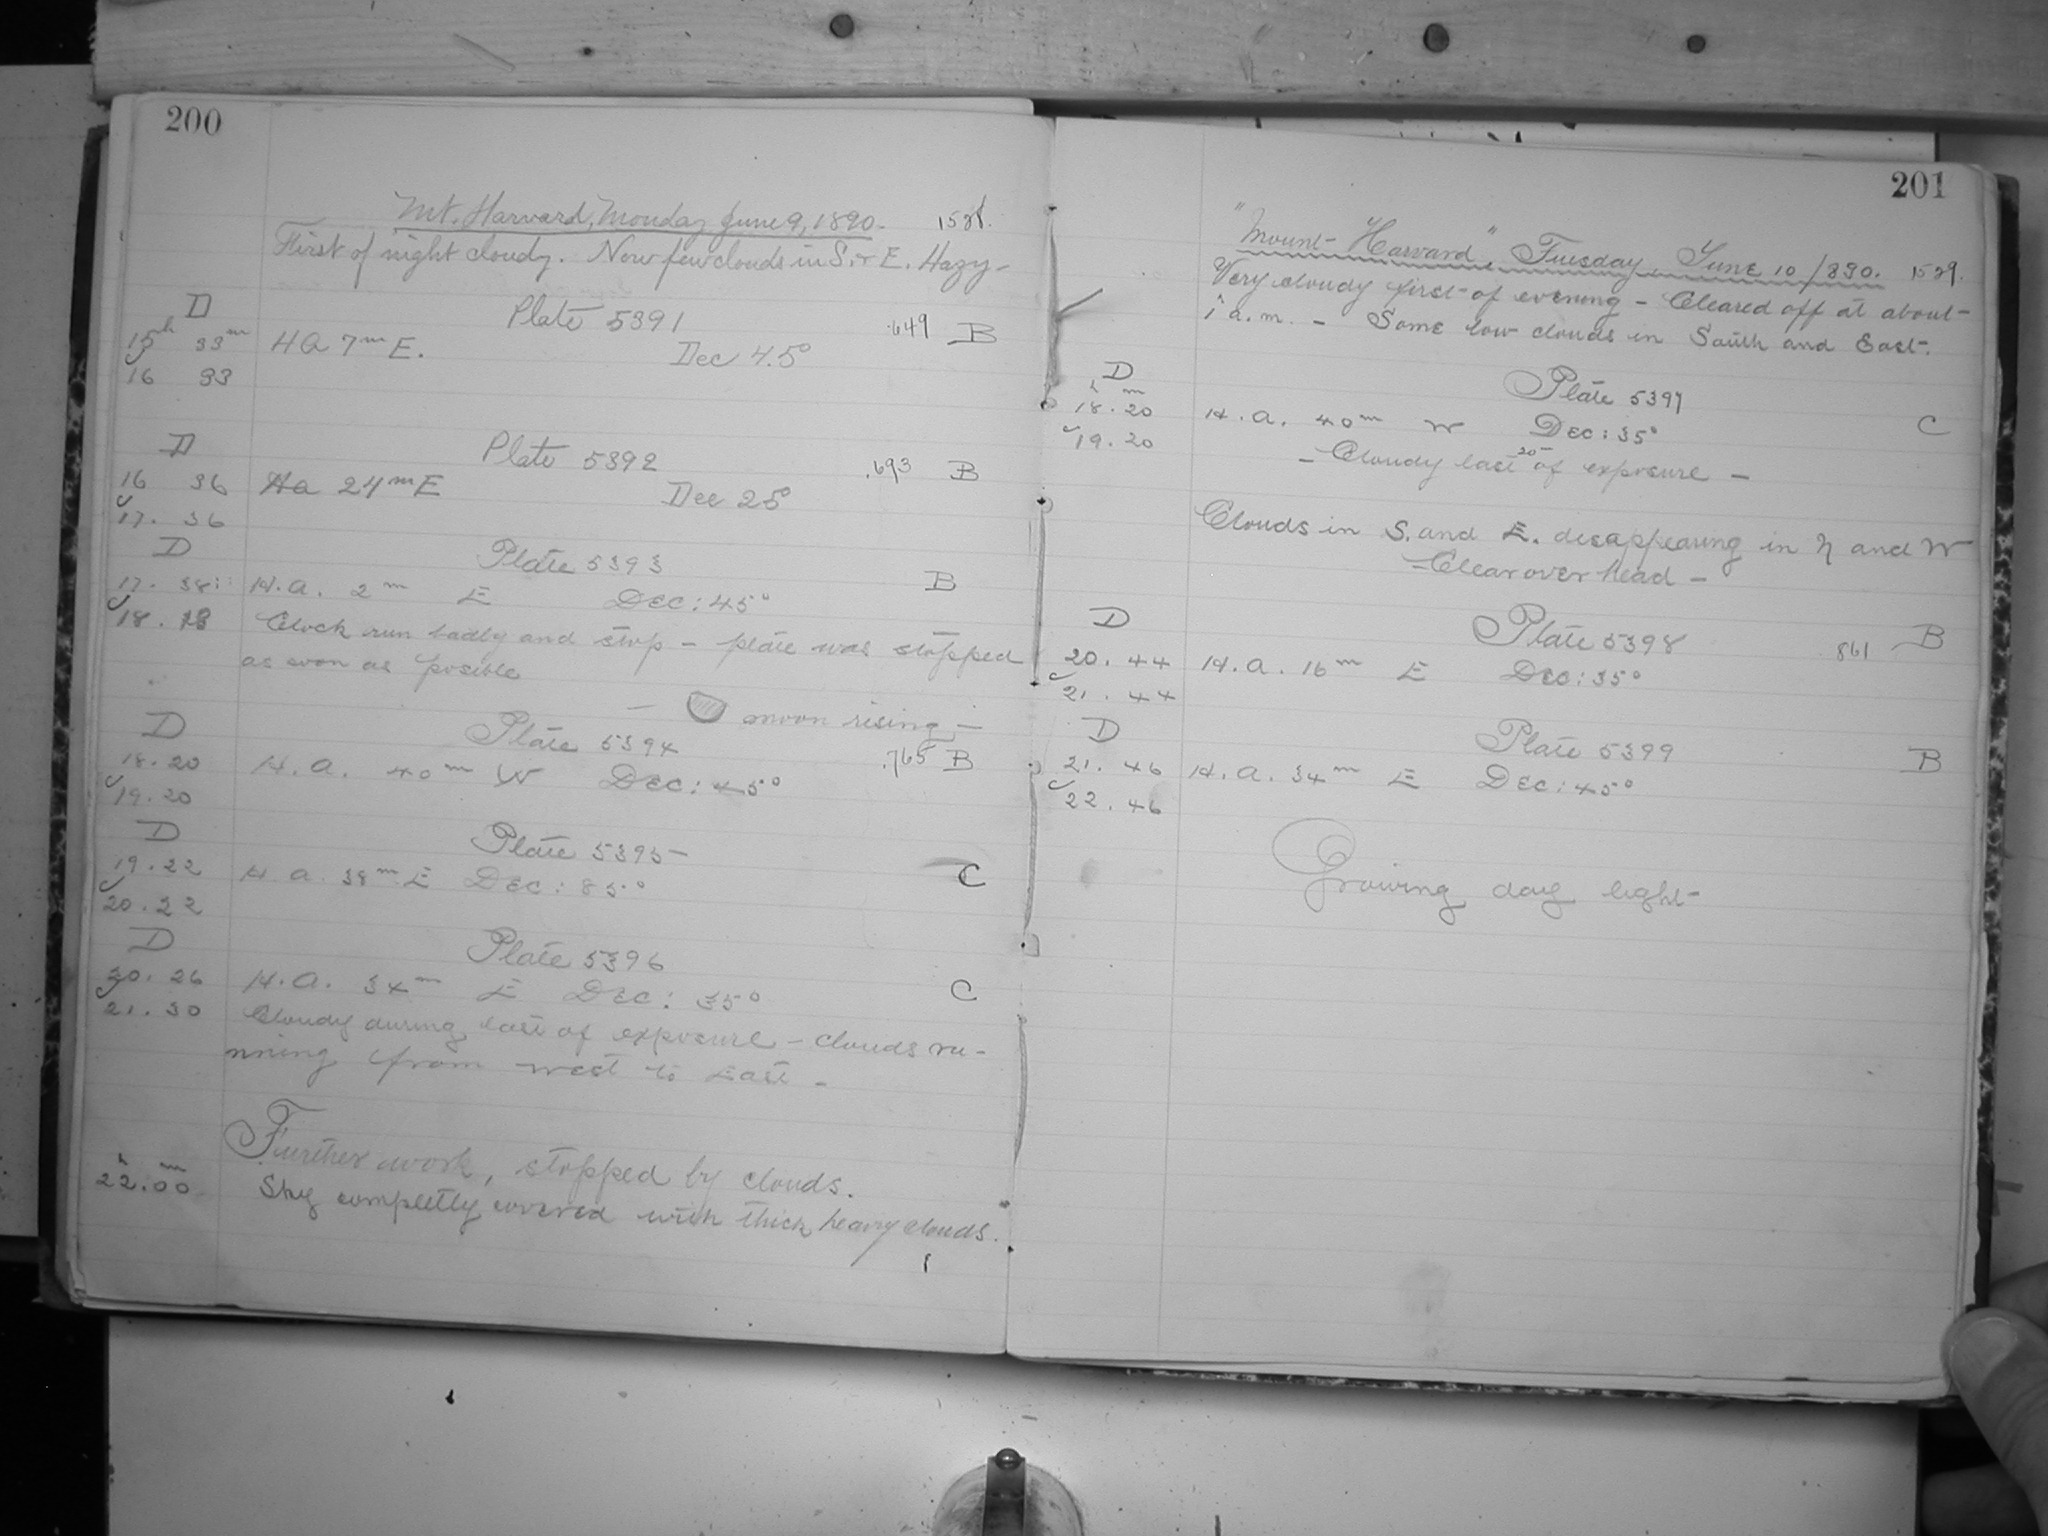 200
Mt. Harvard, Monday June 9, 1890. 1528.
First of night cloudy. Now few clouds in S. + E. Hazy -
D
Plate 5391 .649 B
15h 33m HA 7m E. Dec 45°
16 33
D
Plate 5392 .693 B
16 36 Ha 24m E Dec 25°
17. 36
D
Plate 5393 B
17. 38 H.A. 2m E Dec: 45°
18. 18 Clock run badly and stop - plate was stopped
as soon as posible
- moon rising -
D
Plate 5394 .765 B
18. 20 H.A. 40m W Dec: 45°
19. 20
D
Plate 5395 C
19. 22 H.A. 38m E Dec: 85°
20. 22
D
Plate 5396
20. 26 H.A. 34m E Dec: 35° C
21. 30 Cloudy during last of exposure - clouds ru-
nning from west to East -
Further work, stopped by clouds.
h m
22.00 Sky completly covered with thick heavy clouds.
201
"Mount Harvard", Tuesday, June 10/890. 1529.
Very cloudy first of evening - Cleared off at about
1 a.m. - Some low clouds in South and East.
D
Plate 5397
h m
18. 20 H.A. 40m W Dec: 35° C
19. 20 - Cloudy last 20 of exposure -
Clouds in S. and E. disappearing in N and W
- Clear over head -
D
Plate 5398 861 B
20. 44 H.A. 16m E Dec: 35°
21. 44
D
Plate 5399 B
21. 46 H.A. 34m E Dec: 45°
22. 46
Growing day light -